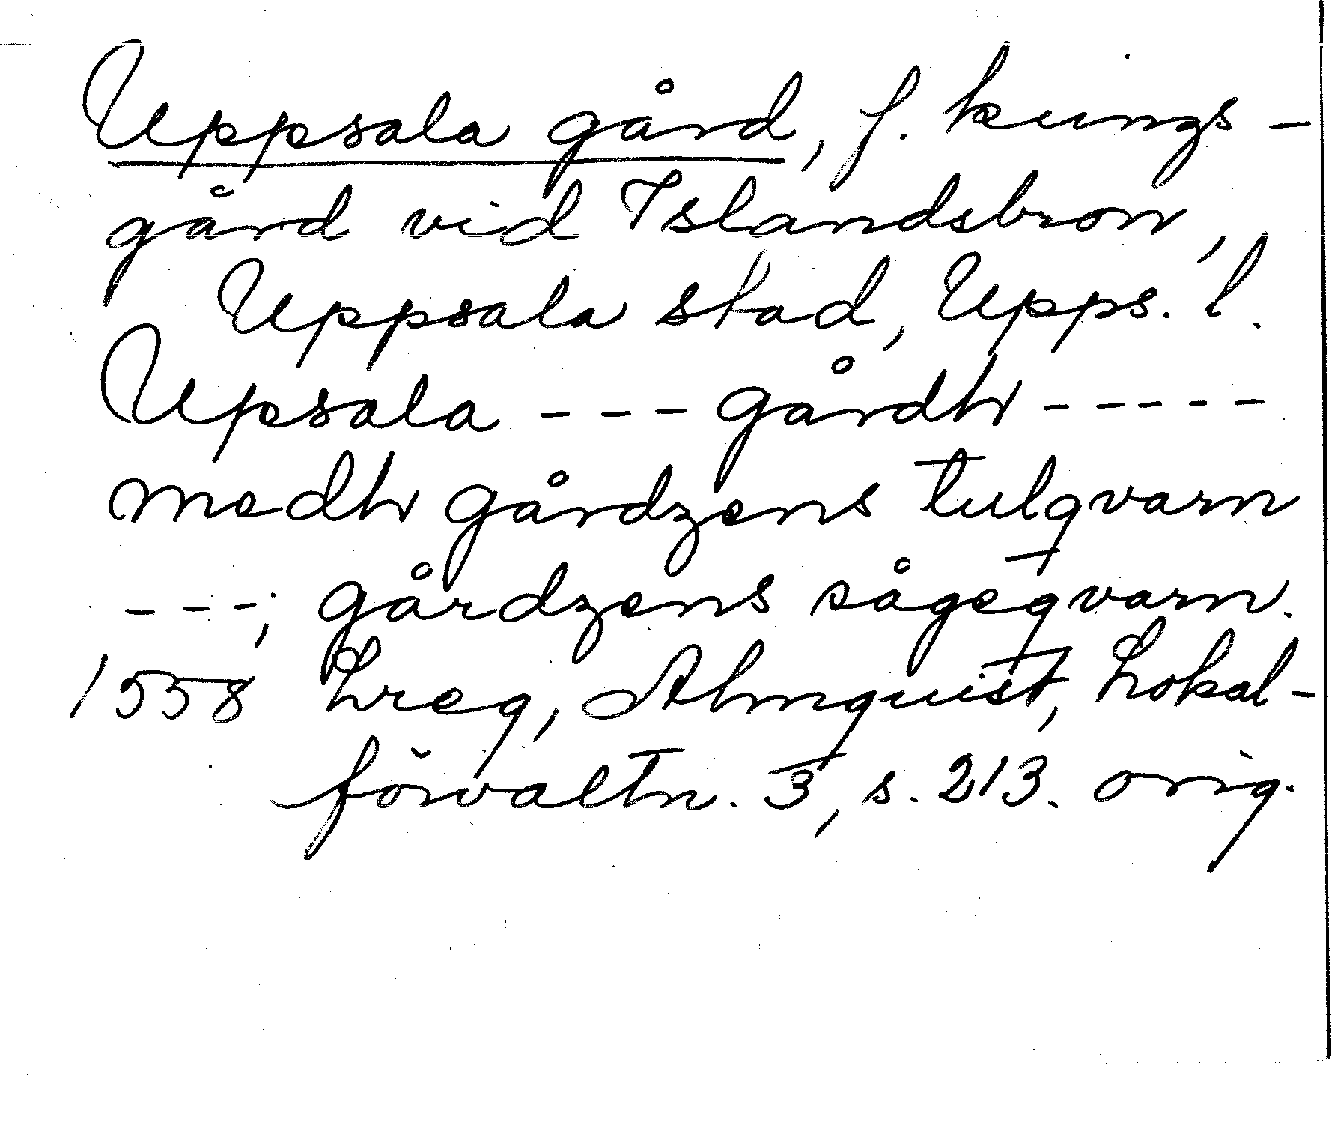 Uppsala gård, f. kungs-
gård vid Islandsbron,
Uppsala stad, Upps. l.
Upsala --- gårdh -----
medh gårdzens tulqvarn
---; gårdzens sågeqvarn.
1558 Lreg, Almquist, Lokal-
förvaltn. 3, s. 213. orig.